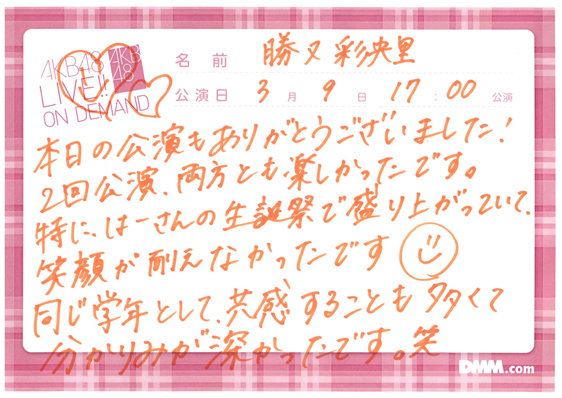 AKB48 AKB48
LIVE!!
ON DEMAND
名前 勝又 彩央里
公演日 3月 9日 17:00 公演
本日の公演もありがとうございました!
2回公演、両方とも楽しかったです。
特に、はーさんの生誕祭で盛り上がっていて、
笑顔が耐えなかったです
同じ学年として、共感することも多くて
分かりみが深かったです。笑
DMM.com